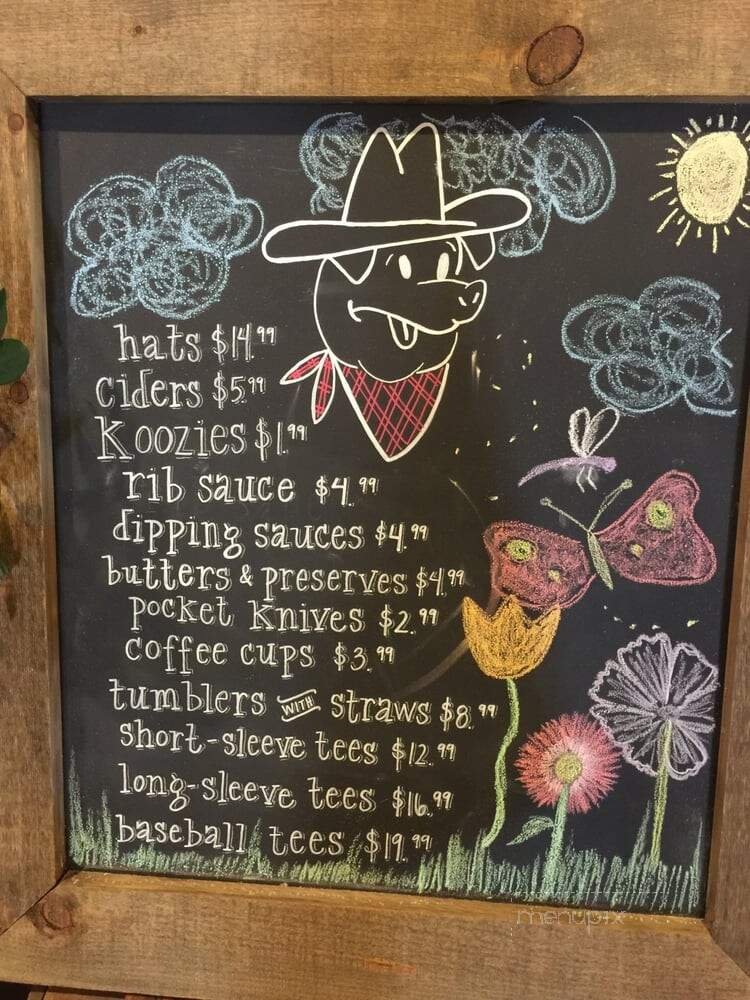 hats $14.99
ciders $5.99
Koozies $1.99
rib sauce $4.99
dipping sauces $4.99
butters & preserves $4.99
pocket knives $2.99
coffee cups $3.99
tumblers WITH straws $8.99
short-sleeve tees $12.99
long-sleeve tees $16.99
baseball tees $19.99
menupix